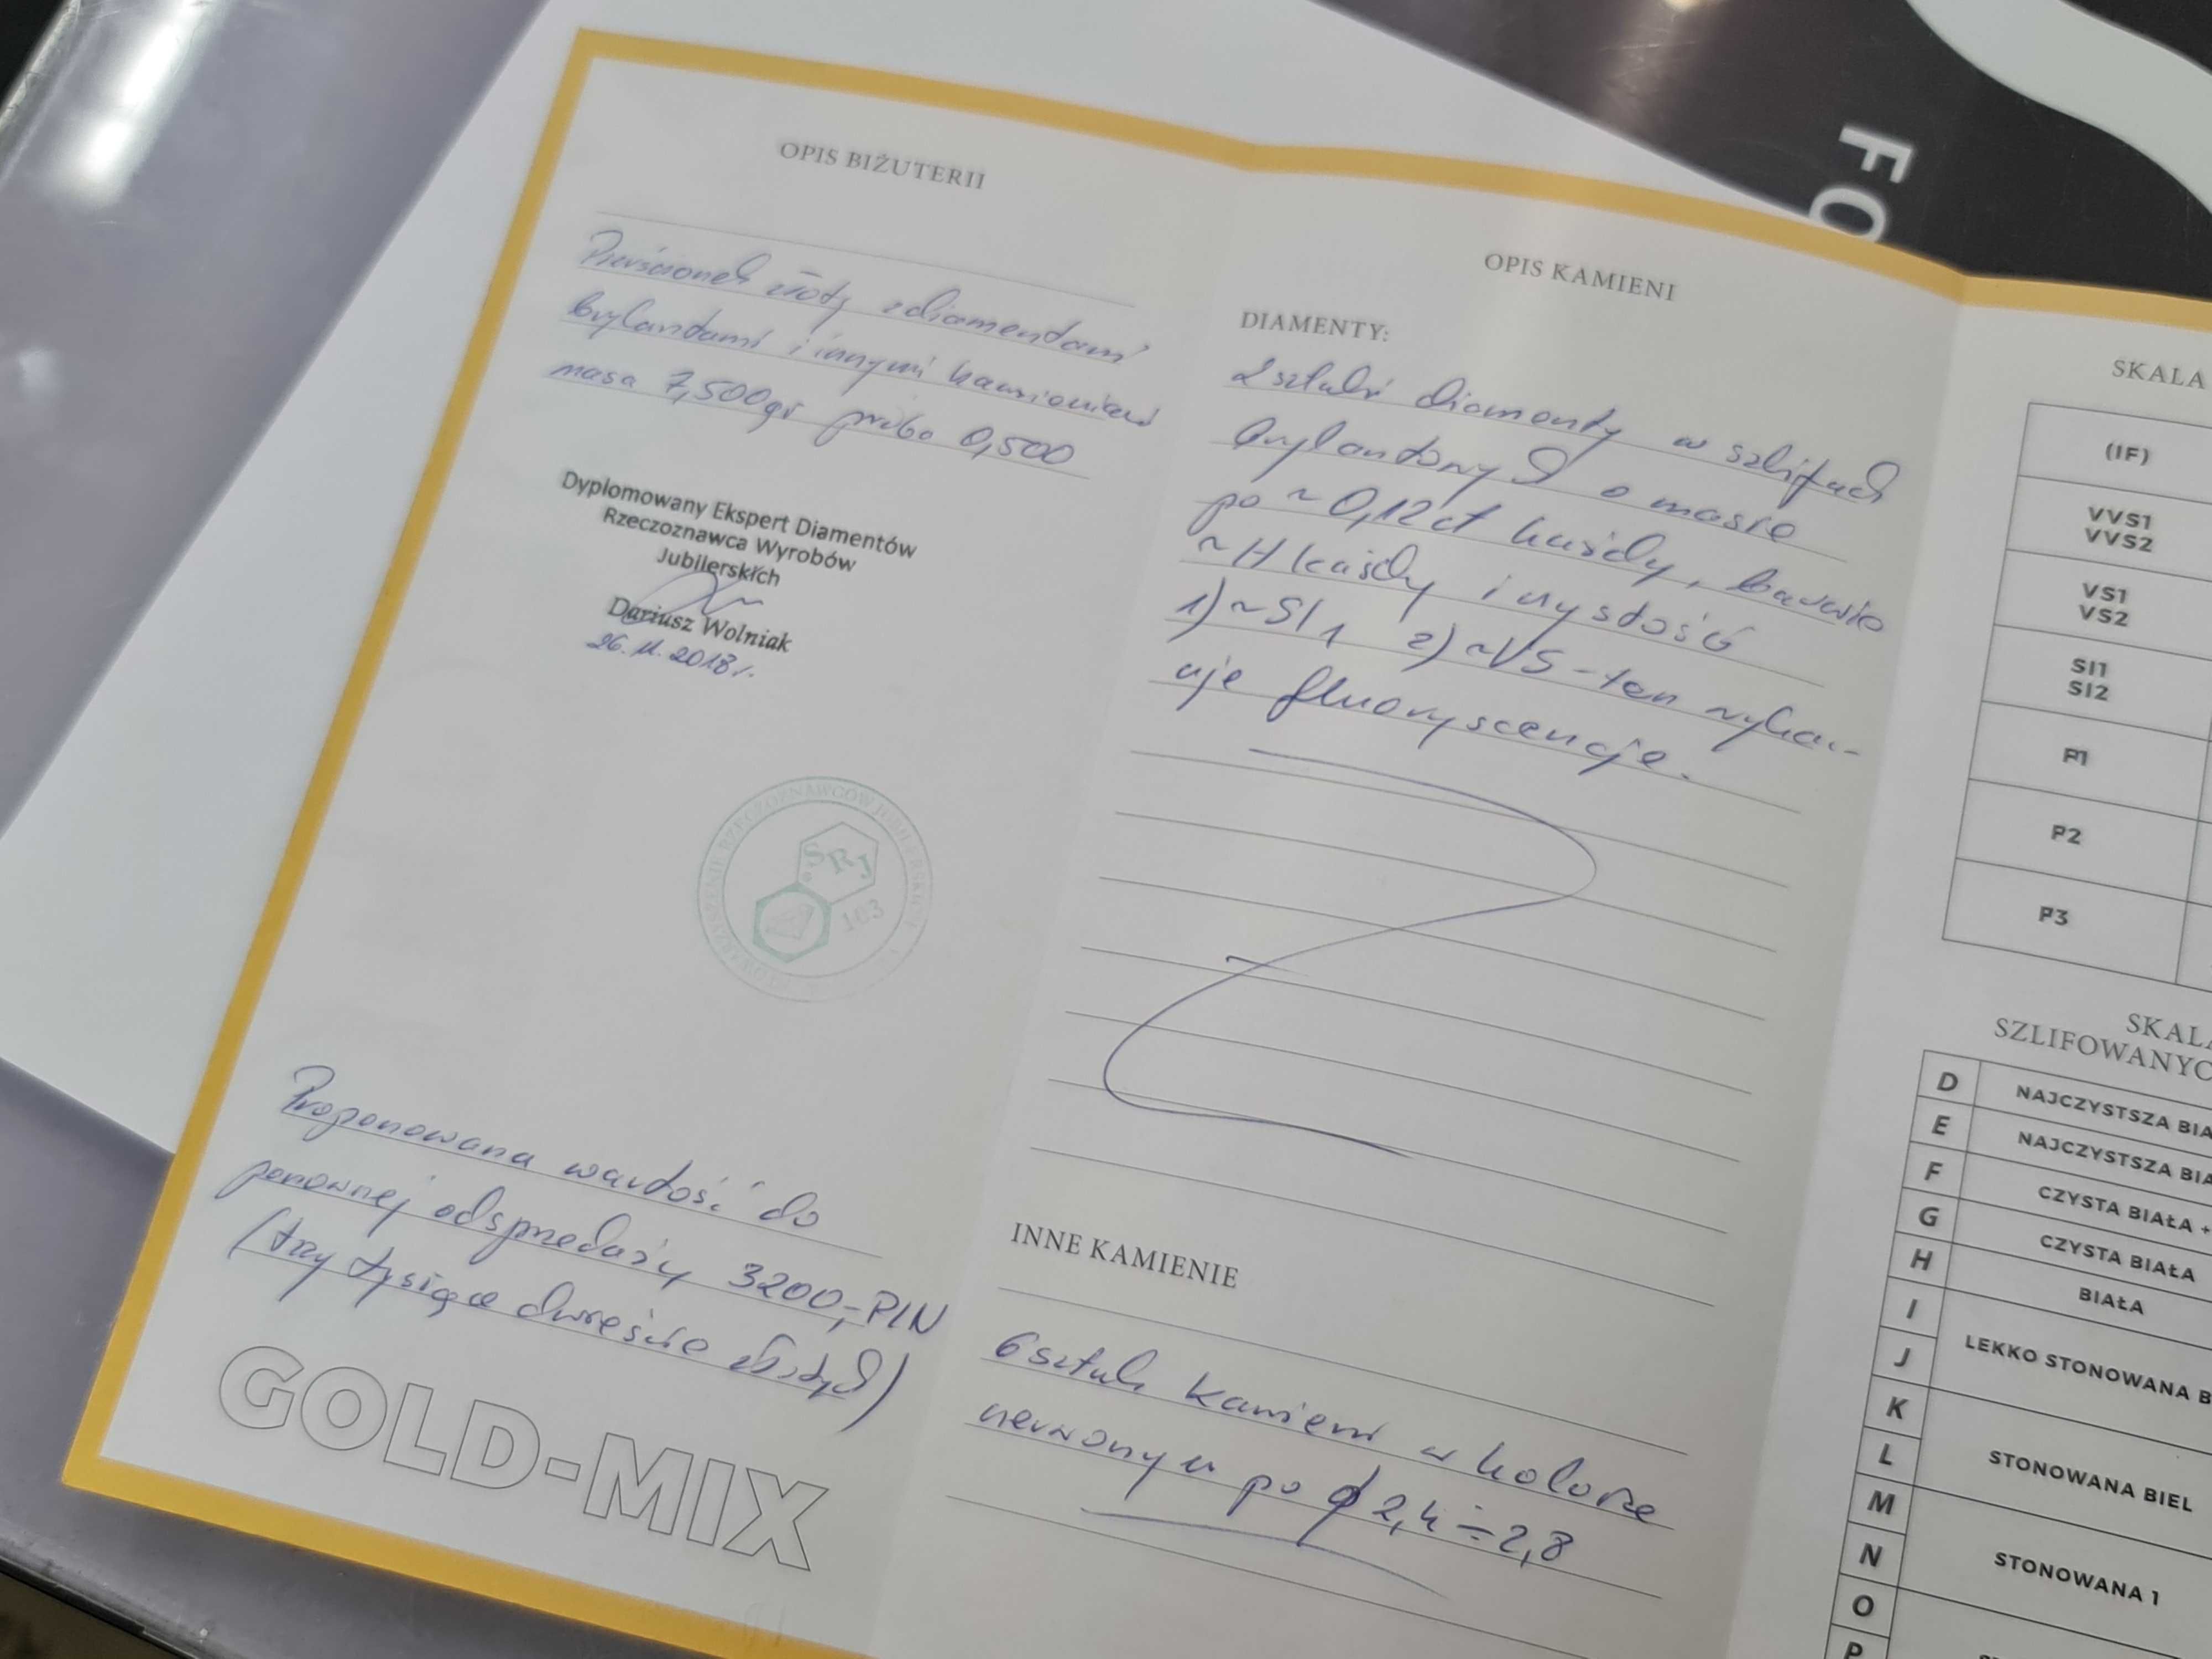 FO
OPIS BIŻUTERII
Pierścionek złoty z diamentami
brylantami i innymi kamieniami
masa 7,500gr próba 0,500
Dyplomowany Ekspert Diamentów
Rzeczoznawca Wyrobów
Jubilerskich
Dariusz Wolniak
26.11.2018r.
STOWARZYSZENIE RZECZOZNAWCÓW JUBILERSKICH
SRJ
103
Proponowana wartość do
ponownej odsprzedaży 3200,-PLN
(trzy tysiące dwieście złotych)
GOLD-MIX
OPIS KAMIENI
DIAMENTY:
2 sztuki diamenty w szlifach
brylantowych o masie
po ~0,12ct każdy, barwie
~H każdy i czystość
1) ~SI1 2) ~VS - ten wyka-
uje fluoryscencje.
INNE KAMIENIE
6 sztuk kamieni w kolorze
czerwonym po ø 2,4÷2,8
SKALA
(IF)
VVS1
VVS2
VS1
VS2
SI1
SI2
P1
P2
P3
SKALA
SZLIFOWANYC
D NAJCZYSTSZA BIA
E NAJCZYSTSZA BIA
F CZYSTA BIAŁA +
G CZYSTA BIAŁA
H BIAŁA
I
J LEKKO STONOWANA B
K
L STONOWANA BIEL
M
N STONOWANA 1
O
P